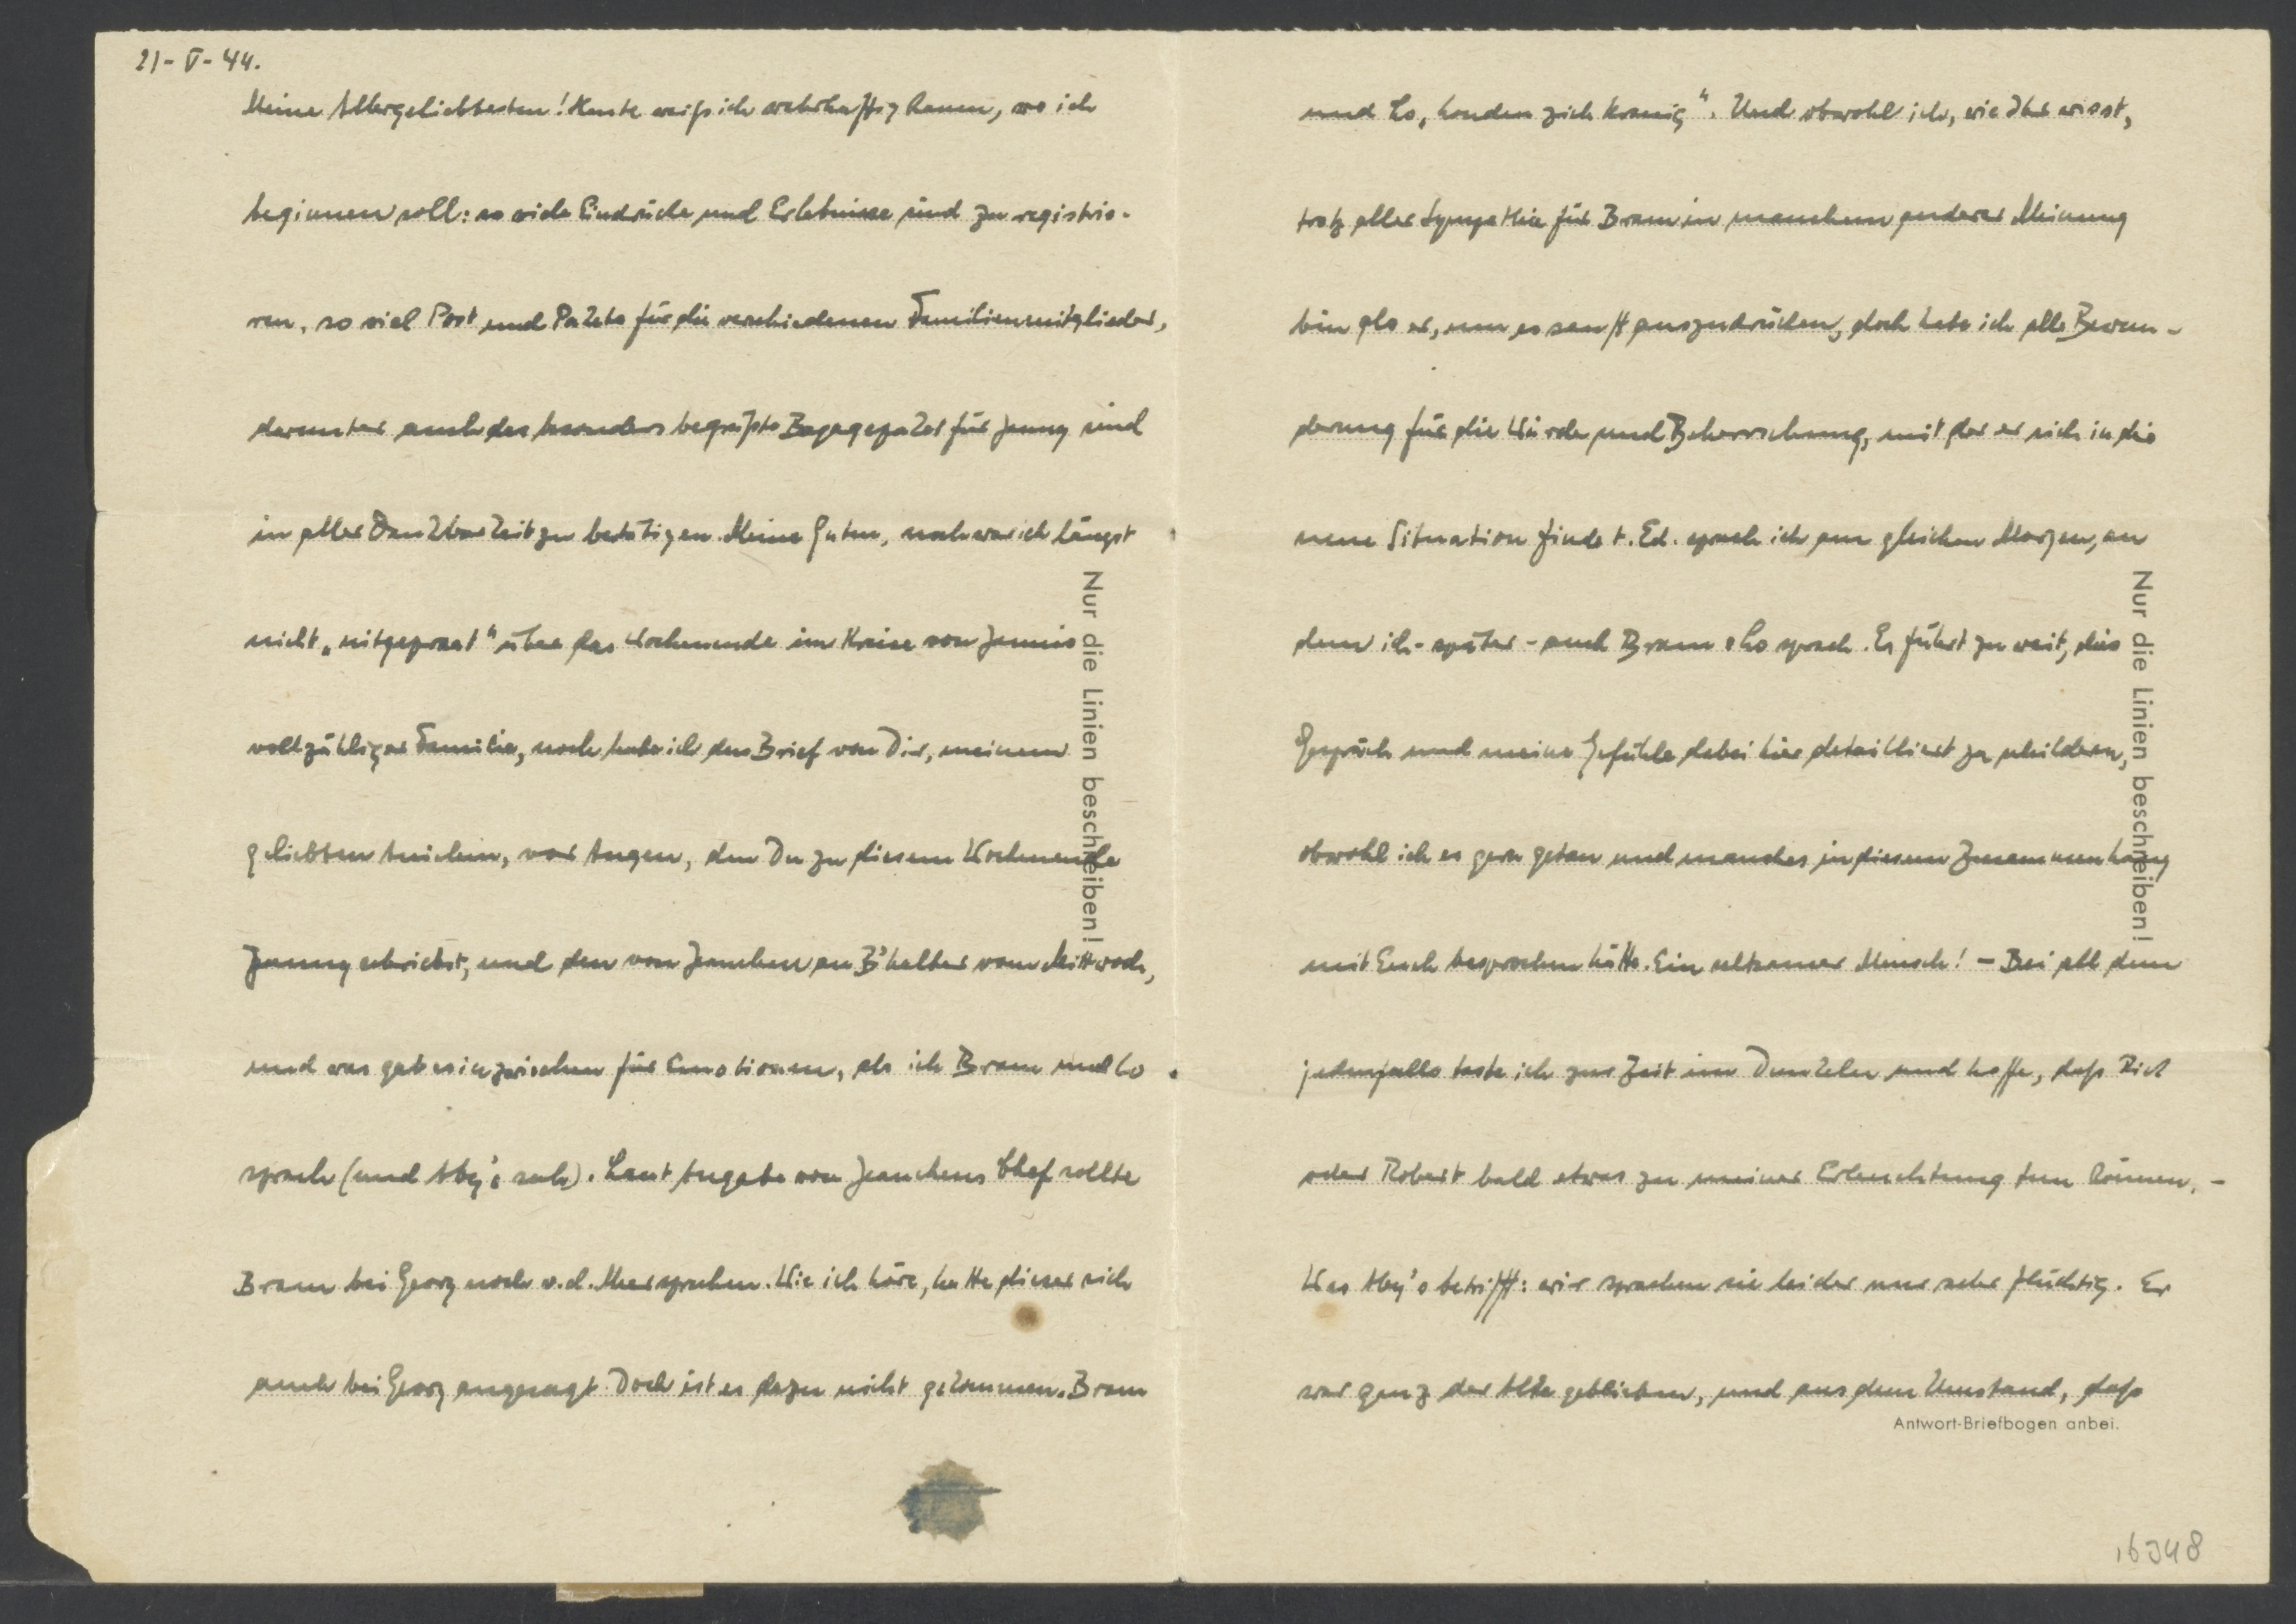 21-V-44.
Meine Allergeliebtesten! Heute weiß ich wahrhaftig kaum, wo ich
beginnen soll: so viele Eindrücke und Erlebnisse sind zu registrie-
ren, so viel Post und Pakete für die verschiedenen Familienmitglieder,
darunter auch das besonders begrüßte Bagagepaket für Jenny sind
in aller Dankbarkeit zu bestätigen. Meine Guten, noch war ich längst
nicht „uitgepraat" über das Wochenende im Kreise von Jennis
vollzähliger Familie, noch habe ich den Brief von Dir, meinem
geliebten, vor Augen, den Du zu diesem Wochenende
Jenny schriebst, und den von Jeanchen an B'halter vom Mittwoch,
und was gab es inzwischen für Emotionen, als ich Bram und Lo
sprach (und Aby's sah). Laut Angabe von Jeanchens Chef sollte
Bram bei Georg noch v.d. Meer sprechen. Wie ich höre, hatte dieser sich
auch bei Georg angesagt. Doch ist es dazu nicht gekommen. Bram
und Lo „houden zich kranig". Und obwohl ich, wie Ihr wisst,
trotz aller Sympathie für Bram in manchem anderer Meinung
bin als er, um es sanft auszudrücken, doch habe ich alle Bewun-
derung für die Würde und Beherrschung, mit der er sich in die
neue Situation findet. Ed. sprach ich am gleichen Morgen, an
dem ich - später - auch Bram & Lo sprach. Es führt zu weit, dies
Gespräch und meine Gefühle dabei hier detailliert zu schildern,
obwohl ich es gern getan und manches in diesem Zusammenhang
mit Euch besprochen hätte. Ein seltsamer Mensch! - Bei all dem
jedenfalls taste ich zur Zeit im Dunkeln und hoffe, daß Riek
oder Robert bald etwas zu meiner Erleuchtung tun können. -
Was Aby's betrifft: wir sprachen sie leider nur sehr flüchtig. Er
war ganz der Alte geblieben, und aus dem Umstand, daß
Nur die Linien beschreiben!
Nur die Linien beschreiben!
Antwort-Briefbogen anbei.
16348